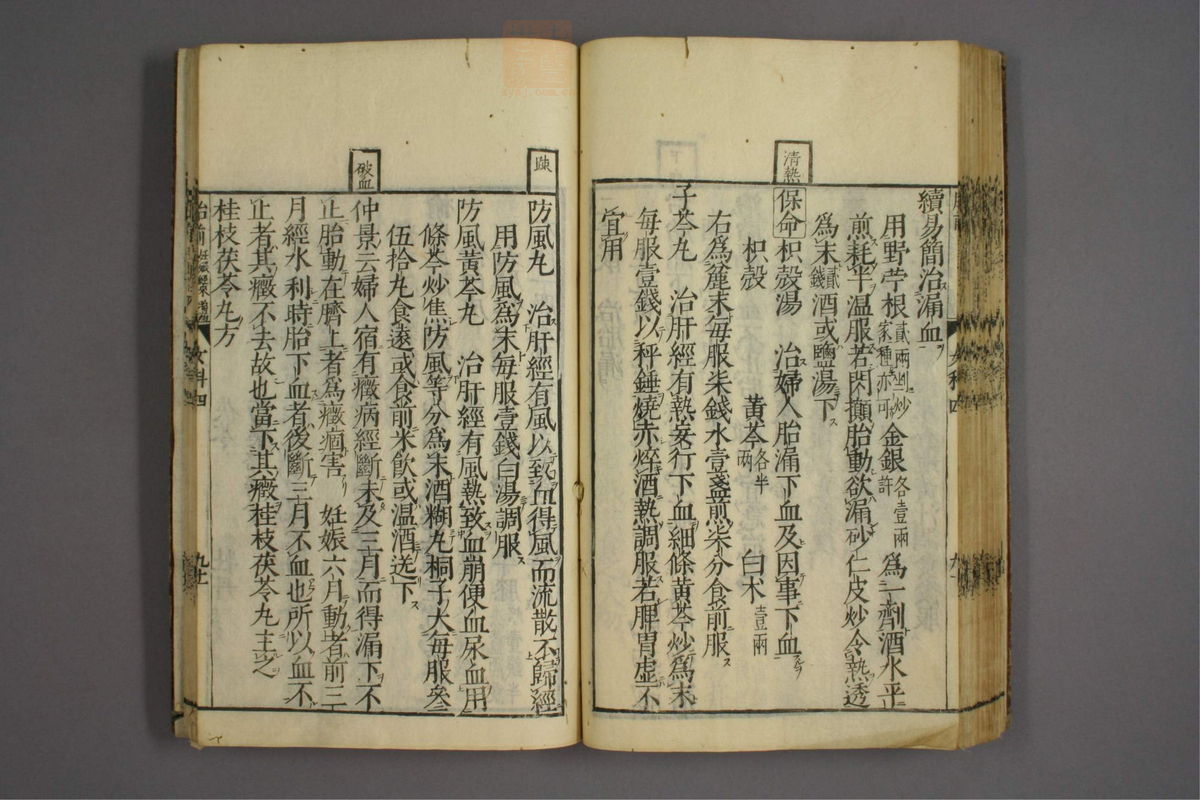 續易簡治漏血
用野苧根貳兩剉炒家種亦可金銀各壹兩許為一劑酒水平
煎耗半温服若閃顚胎動欲漏砂仁皮炒令熱透
為末貳錢酒或鹽湯下
清熱
保命枳殼湯 治婦人胎漏下血及因事下血
枳殼 黃芩各半兩 白朮壹兩
右為麄末每服柒錢水壹盞煎柒分食前服
子芩丸 治肝經有熱妄行下血細條黃芩炒為末
每服壹錢以秤錘燒赤焠酒熱調服若脾胃虚不
宜用
踈
防風丸 治肝經有風以致血得風而流散不歸經
用防風為末每服壹錢白湯調服
防風黃芩丸 治肝經有風熱致血崩便血尿血用
條芩炒焦防風等分為末酒糊丸桐子大每服叄
伍拾丸食遠或食前米飲或温酒送下
破血
仲景云婦人宿有癥病經斷未及三月而得漏下不
止胎動在臍上者為癥痼害 妊娠六月動者前三
月經水利時胎下血者後斷三月不血也所以血不
止者其癥不去故也當下其癥桂枝茯苓丸主之
桂枝茯苓丸方
女科四